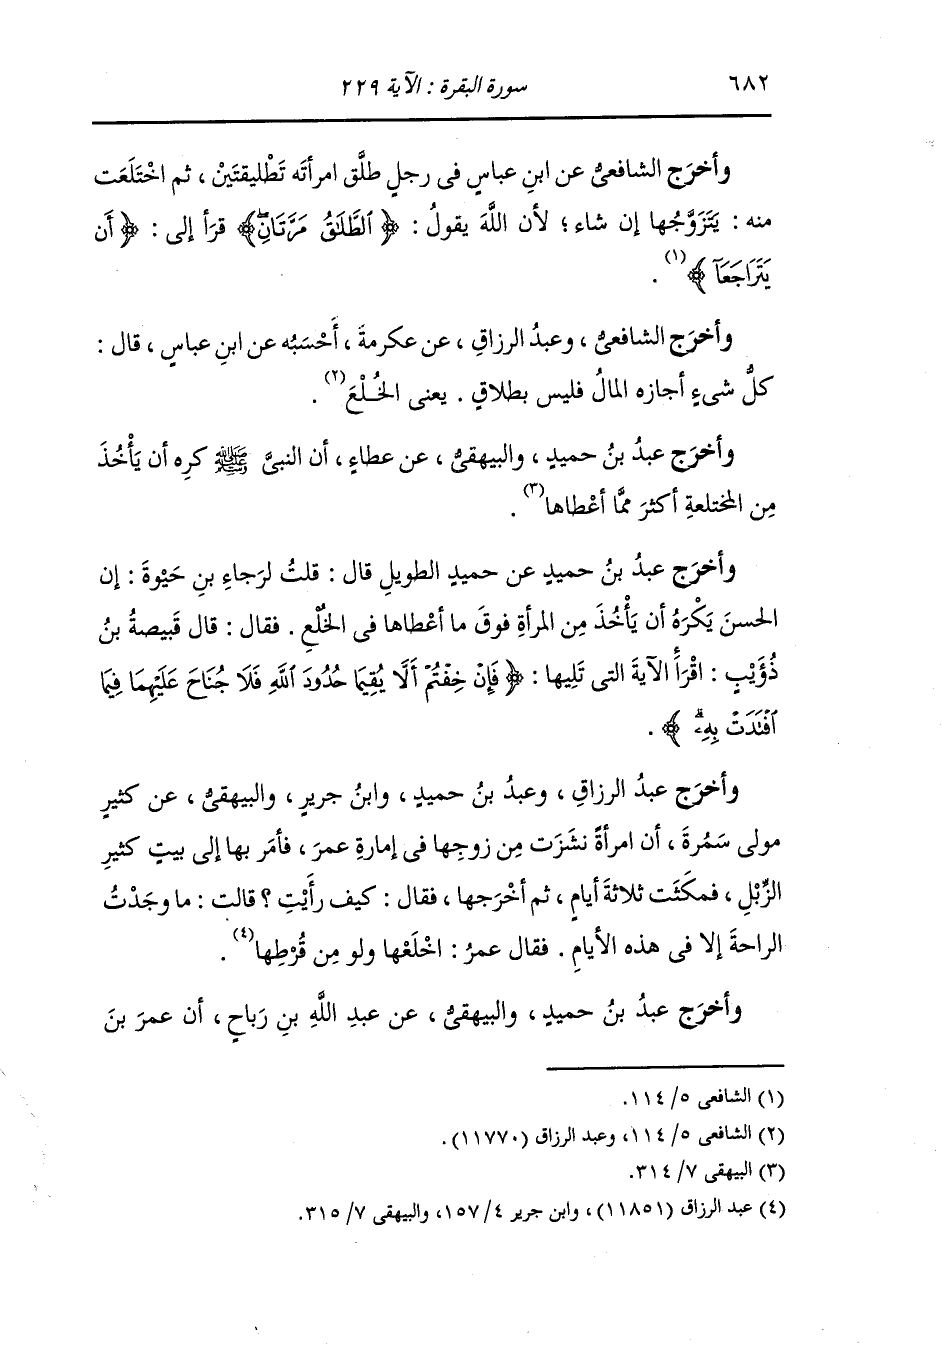 ٦٨٢
سورة البقرة : الآية ٢٢٩
وأخرَج الشافعىُّ عن ابنِ عباسٍ فى رجلٍ طلَّق امرأتَه تَطْليقتَيْن ، ثم اخْتَلَعَت
منه : يَتَزَوَّجُها إن شاء ؛ لأن اللَّهَ يقولُ : ﴿ ٱلطَّلَٰقُ مَرَّتَانِۖ ﴾ قرَأ إلى : ﴿ أَن
يَتَرَاجَعَآ ﴾(١) .
وأخرَج الشافعىُّ ، وعبدُ الرزاقِ ، عن عكرمةَ ، أَحْسَبُه عن ابنِ عباسٍ ، قال :
كلُّ شىءٍ أجازه المالُ فليس بطلاقٍ . يعنى الخُلْعَ(٢) .
وأخرَج عبدُ بنُ حميدٍ ، والبيهقىُّ ، عن عطاءٍ ، أن النبىَّ ﷺ كرِه أن يَأْخُذَ
مِن المختلعةِ أكثرَ ممَّا أعْطاها(٣) .
وأخرَج عبدُ بنُ حميدٍ عن حميدٍ الطويلِ قال : قلتُ لرَجاءِ بنِ حَيْوةَ : إن
الحسنَ يَكْرَهُ أن يَأْخُذَ مِن المرأةِ فوقَ ما أعْطاها فى الخُلْعِ . فقال : قال قَبيصةُ بنُ
ذُؤَيْبٍ : اقْرَأ الآيةَ التى تَلِيها : ﴿ فَإِنْ خِفْتُمْ أَلَّا يُقِيمَا حُدُودَ ٱللَّهِ فَلَا جُنَاحَ عَلَيْهِمَا فِيمَا
ٱفْتَدَتْ بِهِۦۗ ﴾ .
وأخرَج عبدُ الرزاقِ ، وعبدُ بنُ حميدٍ ، وابنُ جريرٍ ، والبيهقىُّ ، عن كثيرٍ
مولى سَمُرةَ ، أن امرأةً نشَزَت مِن زوجِها فى إمارةِ عمرَ ، فأمَر بها إلى بيتٍ كثيرِ
الزِّبْلِ ، فمكَثَت ثلاثةَ أيامٍ ، ثم أخْرَجها ، فقال : كيف رأَيْتِ ؟ قالت : ما وجَدْتُ
الراحةَ إلا فى هذه الأيامِ . فقال عمرُ : اخْلَعْها ولو مِن قُرْطِها(٤) .
وأخرَج عبدُ بنُ حميدٍ ، والبيهقىُّ ، عن عبدِ اللَّهِ بنِ رَباحٍ ، أن عمرَ بنَ
(١) الشافعى ٥/ ١١٤.
(٢) الشافعى ٥/ ١١٤، وعبد الرزاق (١١٧٧٠).
(٣) البيهقى ٧/ ٣١٤.
(٤) عبد الرزاق (١١٨٥١)، وابن جرير ٤/ ١٥٧، والبيهقى ٧/ ٣١٥.